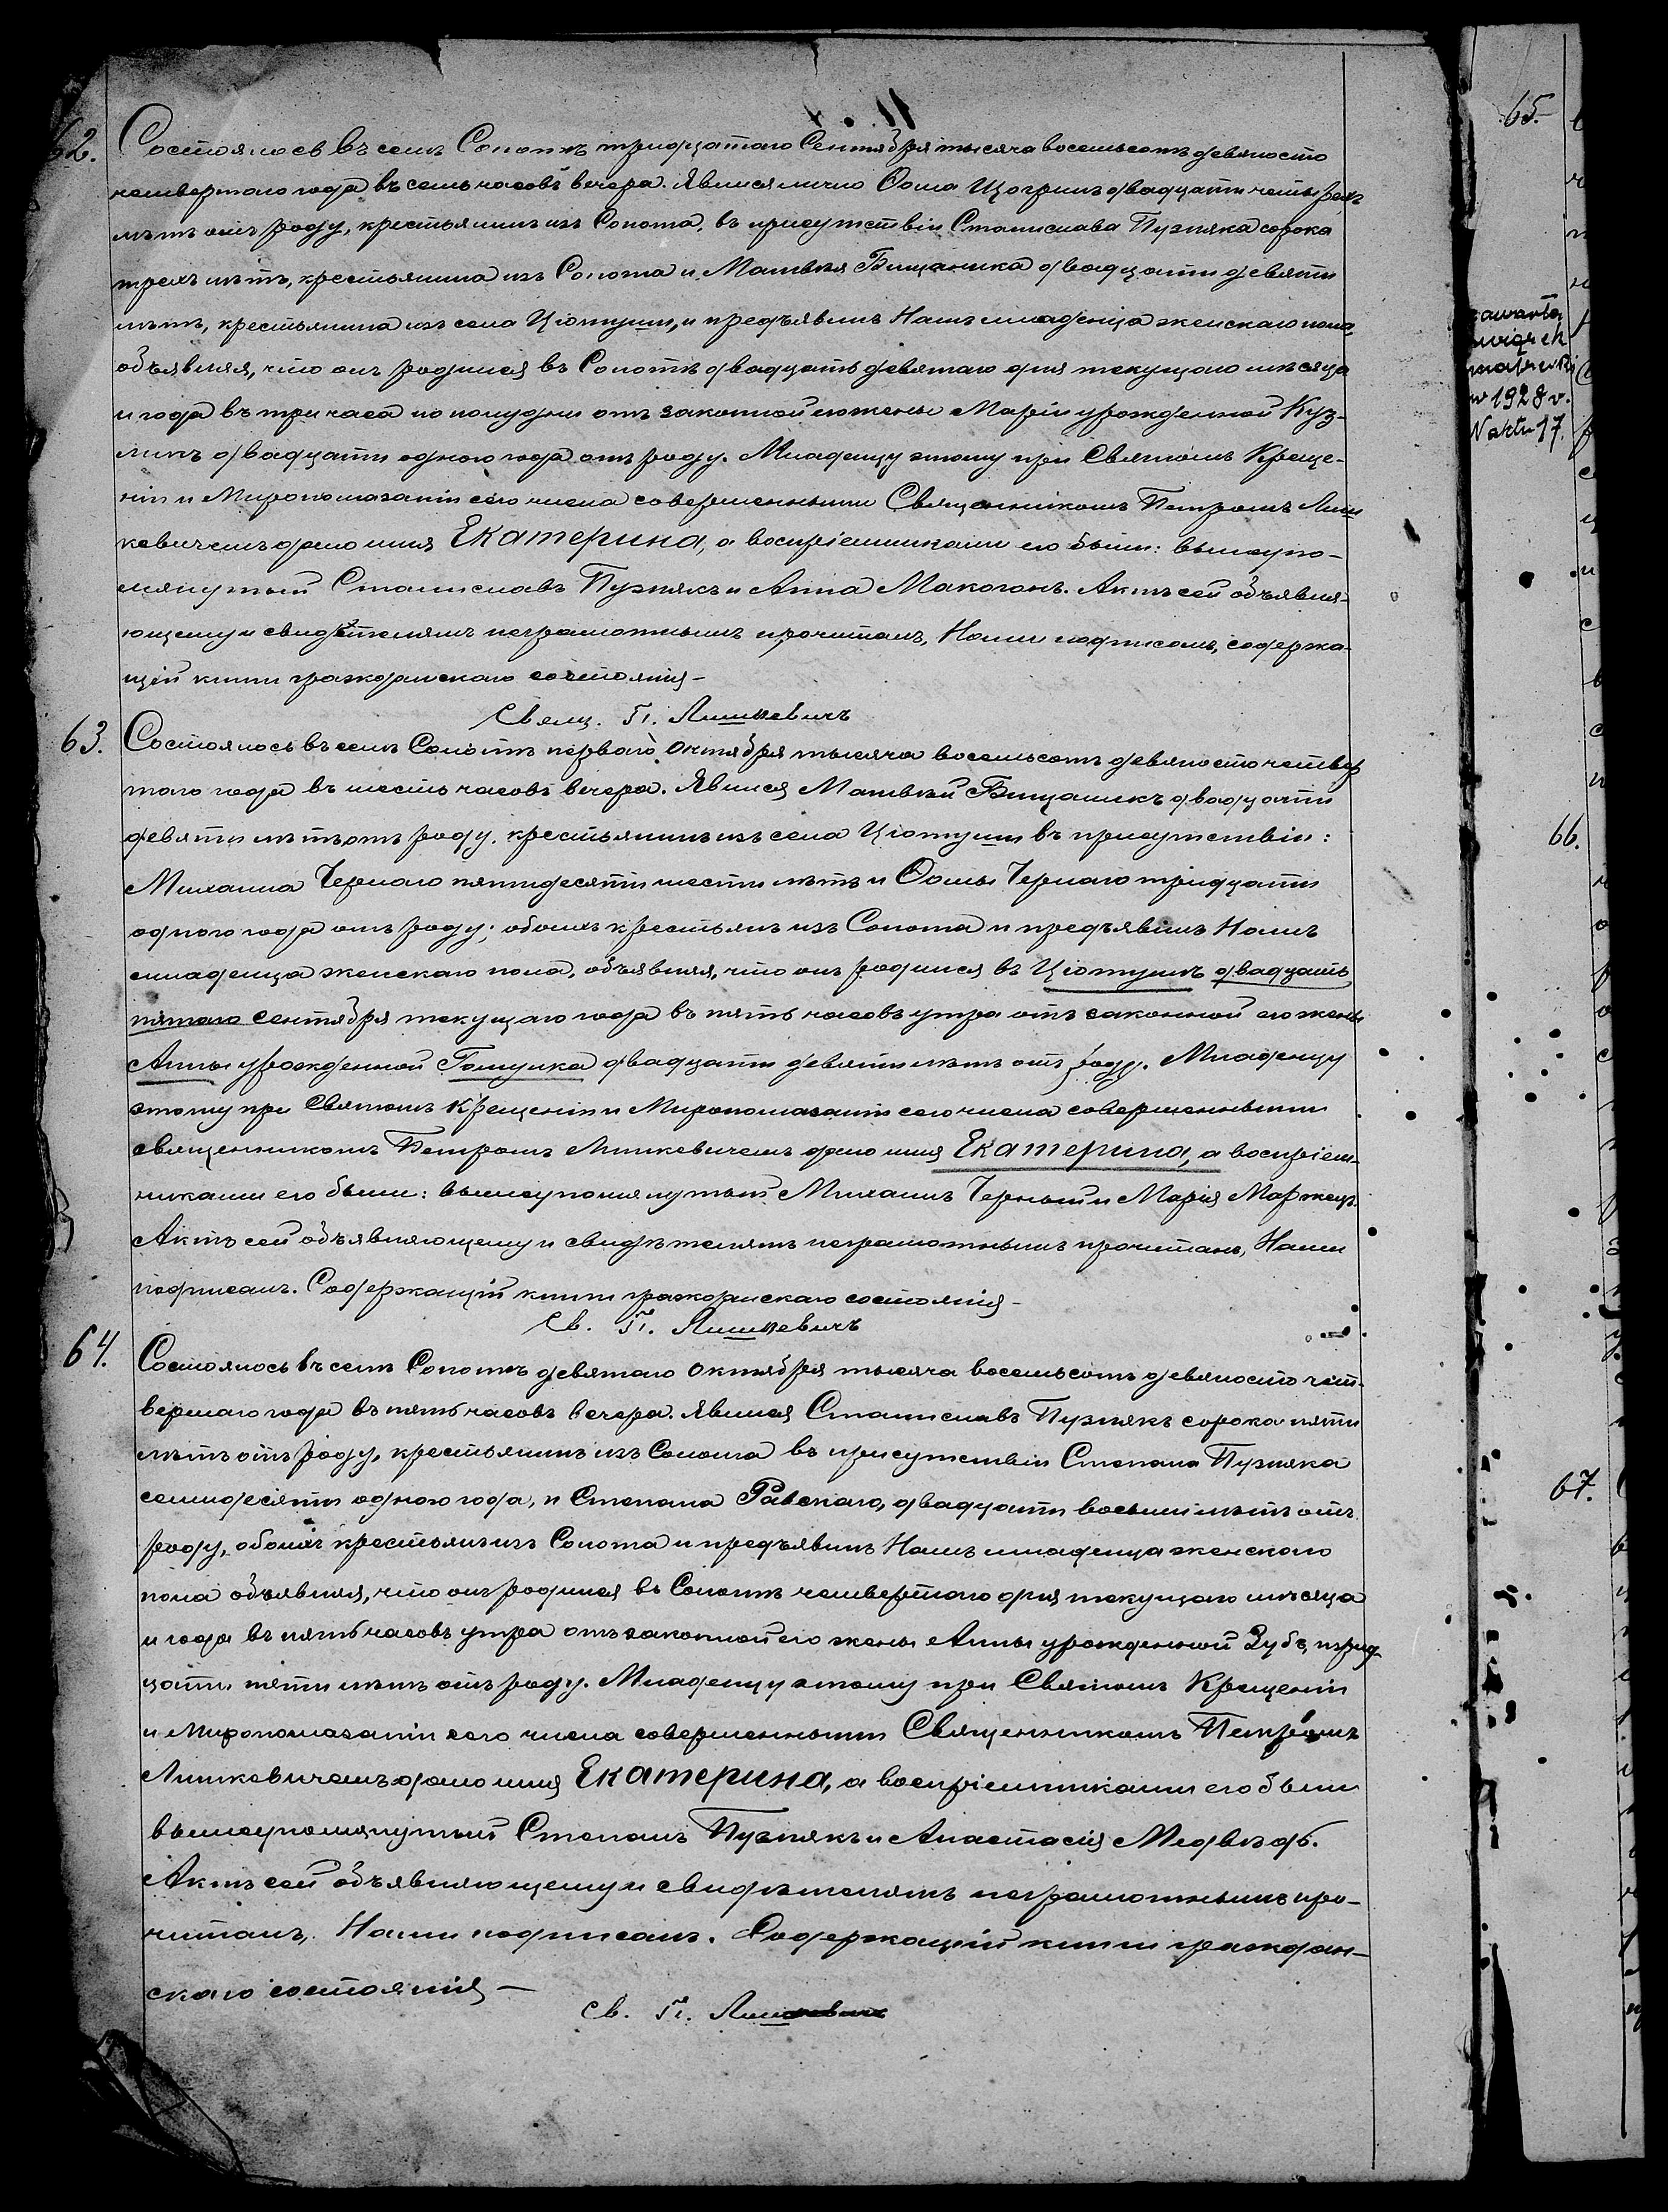 62. Состоялось въ селѣ Сопотѣ тридцатаго Сентября тысяча восемьсотъ девяносто
четвертого года въ семь часовъ вечера. Явился лично Ѳома двадцати четырехъ
лѣтъ отъ роду, крестьянинъ изъ Сопота, въ присутствіи Станислава Пузняка сорока
трехъ лѣтъ, крестьянина изъ Сопота и Матвѣя Бищаника двадцати девяти
лѣтъ, крестьянина изъ села Ціотуши, и предъявилъ Намъ младенца женскаго пола,
объявляя, что онъ родился въ Сопотѣ двадцать девятаго дня текущаго мѣсяца
и года въ три часа по полудни отъ законной его жены Маріи урожденной Куз-
двадцати одного года отъ роду. Младенцу этому при Святомъ Креще-
ніи и Миропомазаніи сего числа совершенными Священникомъ Петромъ Лиш
кевичемъ дано имя Екатерина, а воспріемниками его были: вышеупо-
мянутый Станиславъ Пузнякъ и Анна Макогонъ. Актъ сей объявля-
ющему и свидѣтелямъ неграмотнымъ прочитанъ, Нами подписанъ, содержа-
щій книги гражданскаго состоянія –
Свящ. П. Лишкевичъ
63. Состоялось въ селѣ Сопотѣ первого Октября тысяча восемьсотъ девяносто четвер
того года въ шесть часовъ вечера. Явился Матвѣй Бищаникъ двадцати
девяти лѣтъ отъ роду, крестьянинъ изъ села Ціотуши въ присутствіи:
Михаила Чернаго пятидесяти шести лѣтъ и Ѳомы Чернаго тридцати
одного года отъ роду; обоихъ крестьянъ изъ Сопота и предъявилъ Намъ
младенца женскаго пола, объявляя, что онъ родился въ Ціотушѣ двадцать
пятаго Сентября текущаго года въ пять часовъ утра отъ законной его жены
Анны урожденной двадцати девяти лѣтъ отъ роду. Младенцу
этому при Святомъ Крещеніи и Миропомазаніи сего числа совершенными
священникомъ Петромъ Лишкевичемъ дано имя Екатерина, а воспріем-
никами его были: вышеупомянутый Михаилъ Черный и Марія
Актъ сей объявляющему и свидѣтелямъ неграмотнымъ прочитанъ, Нами
подписанъ. Содержащій книги гражданскаго состоянія –
Св. П. Лишкевичъ
64. Состоялось въ селѣ Сопотѣ девятаго Октября тысяча восемьсотъ девяносто чет-
вертаго года въ пять часовъ вечера. Явился Станиславъ Пузнякъ сорока пяти
лѣтъ отъ роду, крестьянинъ изъ Сопота въ присутствіи Степана Пузняка
семидесяти одного года, и Степана Равскаго, двадцати восьми лѣтъ отъ
роду, обоихъ крестьянъ изъ Сопота и предъявилъ Намъ младенца женскаго
пола объявляя, что онъ родился въ Сопотѣ четвертаго дня текущаго мѣсяца
и года въ пять часовъ утра отъ законной его жены Анны урожденной Зубъ, трид-
цати пяти лѣтъ отъ роду. Младенцу этому при Святомъ Крещеніи
и Миропомазаніи сего числа совершенными Священникомъ Петромъ
Лишкевичемъ дано имя Екатерина, а воспріемниками его были
вышеупомянутый Степанъ Пузнякъ и Анастасія Медвѣдь.
Актъ сей объявляющему и свидѣтелямъ неграмотнымъ про-
читанъ, Нами подписанъ. Содержащій книги граждан-
скаго состоянія –
Св. П. Лишкевичъ
65.
w 1928 r.
N aktu 17.
66.
67.